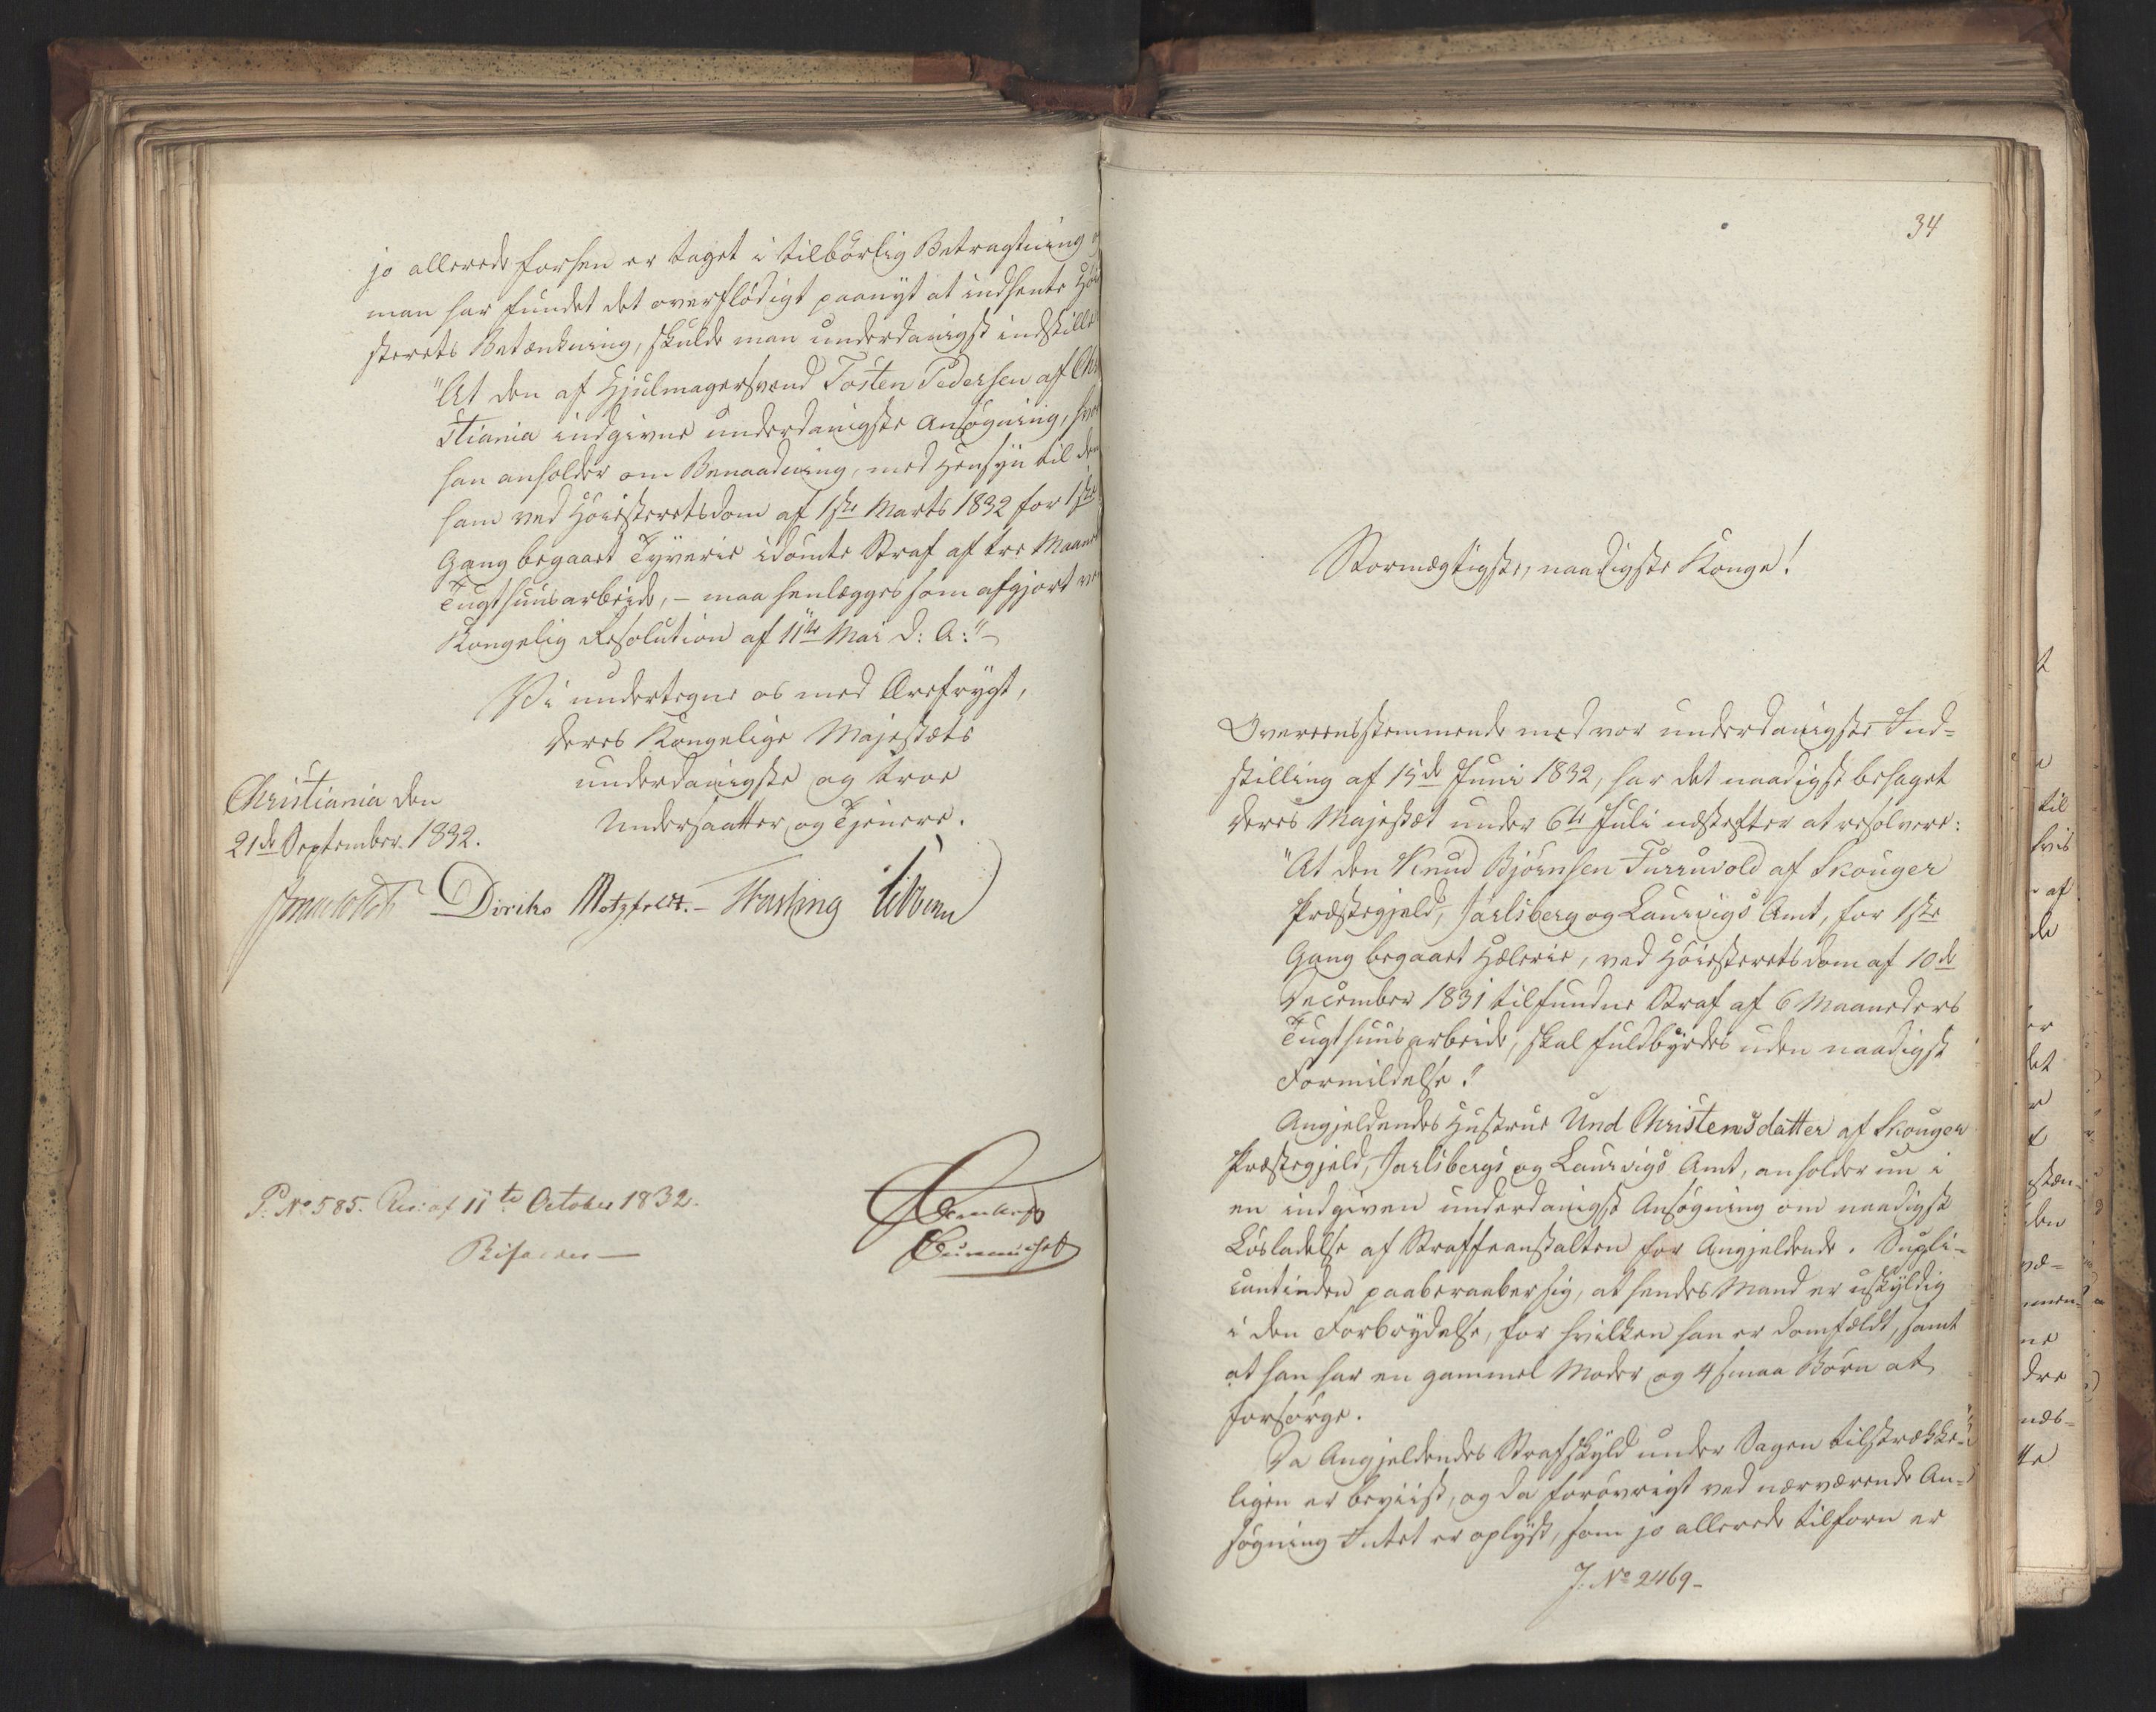 jo allerede forhen er taget i tilbørlig Betragtning
man har fundet det overflødigt paanyt at indhente Høie
sterets Betænkning, skulde man underdanigst indstille
"At den af Hjulmagersvend Tosten Pedersen af Chri
stiania indgivne underdanigste Ansøgning, hvori
han anholder om Benaadning, med Hensyn til den
ham ved Høiesteretsdom af 1ste Marts 1832 for 1ste
Gang begaaet Tyverie idømte Straf af tre Maaneders
Tugthuusarbeide, – maa henlægges som afgjort ved
Kongelig Resolution af 11te Mai d: A:"
Vi undertegne os med Ærefrygt,
Deres Kongelige Majestæts
underdanigste og troe
Undersaatter og Tjenere.
Christiania den
21de September 1832.
Diriks Motzfeldt. Fasting
P. No 585. Res: af 11te October 1832.
Bifaldes
34
Stormægtigste, naadigste Konge!
Overeensstemmende med vor underdanigste Ind-
stilling af 15de Juni 1832, har det naadigst behaget
Deres Majestæt under 6te Juli næstefter at resolvere:
"At den Knud Bjørnsen Furruvold af Skouger
Præstegjeld, Jarlsberg og Laurvigs Amt, for 1ste
Gang begaaet Hælerie, ved Høiesteretsdom af 10de
December 1831 tilfundne Straf af 6 Maaneders
Tugthuusarbeide, skal fuldbyrdes uden naadigst
Formildelse."
Angjeldendes Hustrue Und Christensdatter af Skouger
Præstegjeld, Jarlsbergs og Laurvigs Amt, anholder nu i
en indgiven underdanigst Ansøgning om naadigst
Løsladelse af Straffeanstalten for Angjeldende. Supli-
cantinden paaberaaber sig, at hendes Mand er uskyldig
i den Forbrydelse, for hvilken han er domfældt, samt
at han har en gammel Moder og 4 smaa Børn at
forsørge.
Da Angjeldendes Strafskyld under Sagen tilstrække-
ligen er beviist, og da forøvrigt ved nærværende An-
søgning Intet er oplyst, som jo allerede tilforn er
J. No 2469